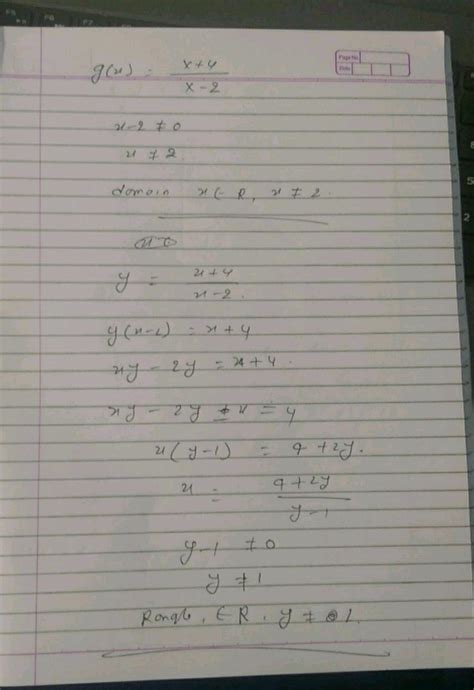 F5 F6 F7 F8
Page No.
Date
g(x) = x+4 / x-2
x-2 ≠ 0
x ≠ 2
domain x ∈ R, x ≠ 2.
y = x+4 / x-2.
y(x-2) = x+4
xy - 2y = x+4.
xy - 2y - x = 4
x(y-1) = 4+2y.
x = 4+2y / y-1
y-1 ≠ 0
y ≠ 1
Range, ∈ R, y ≠ 1.